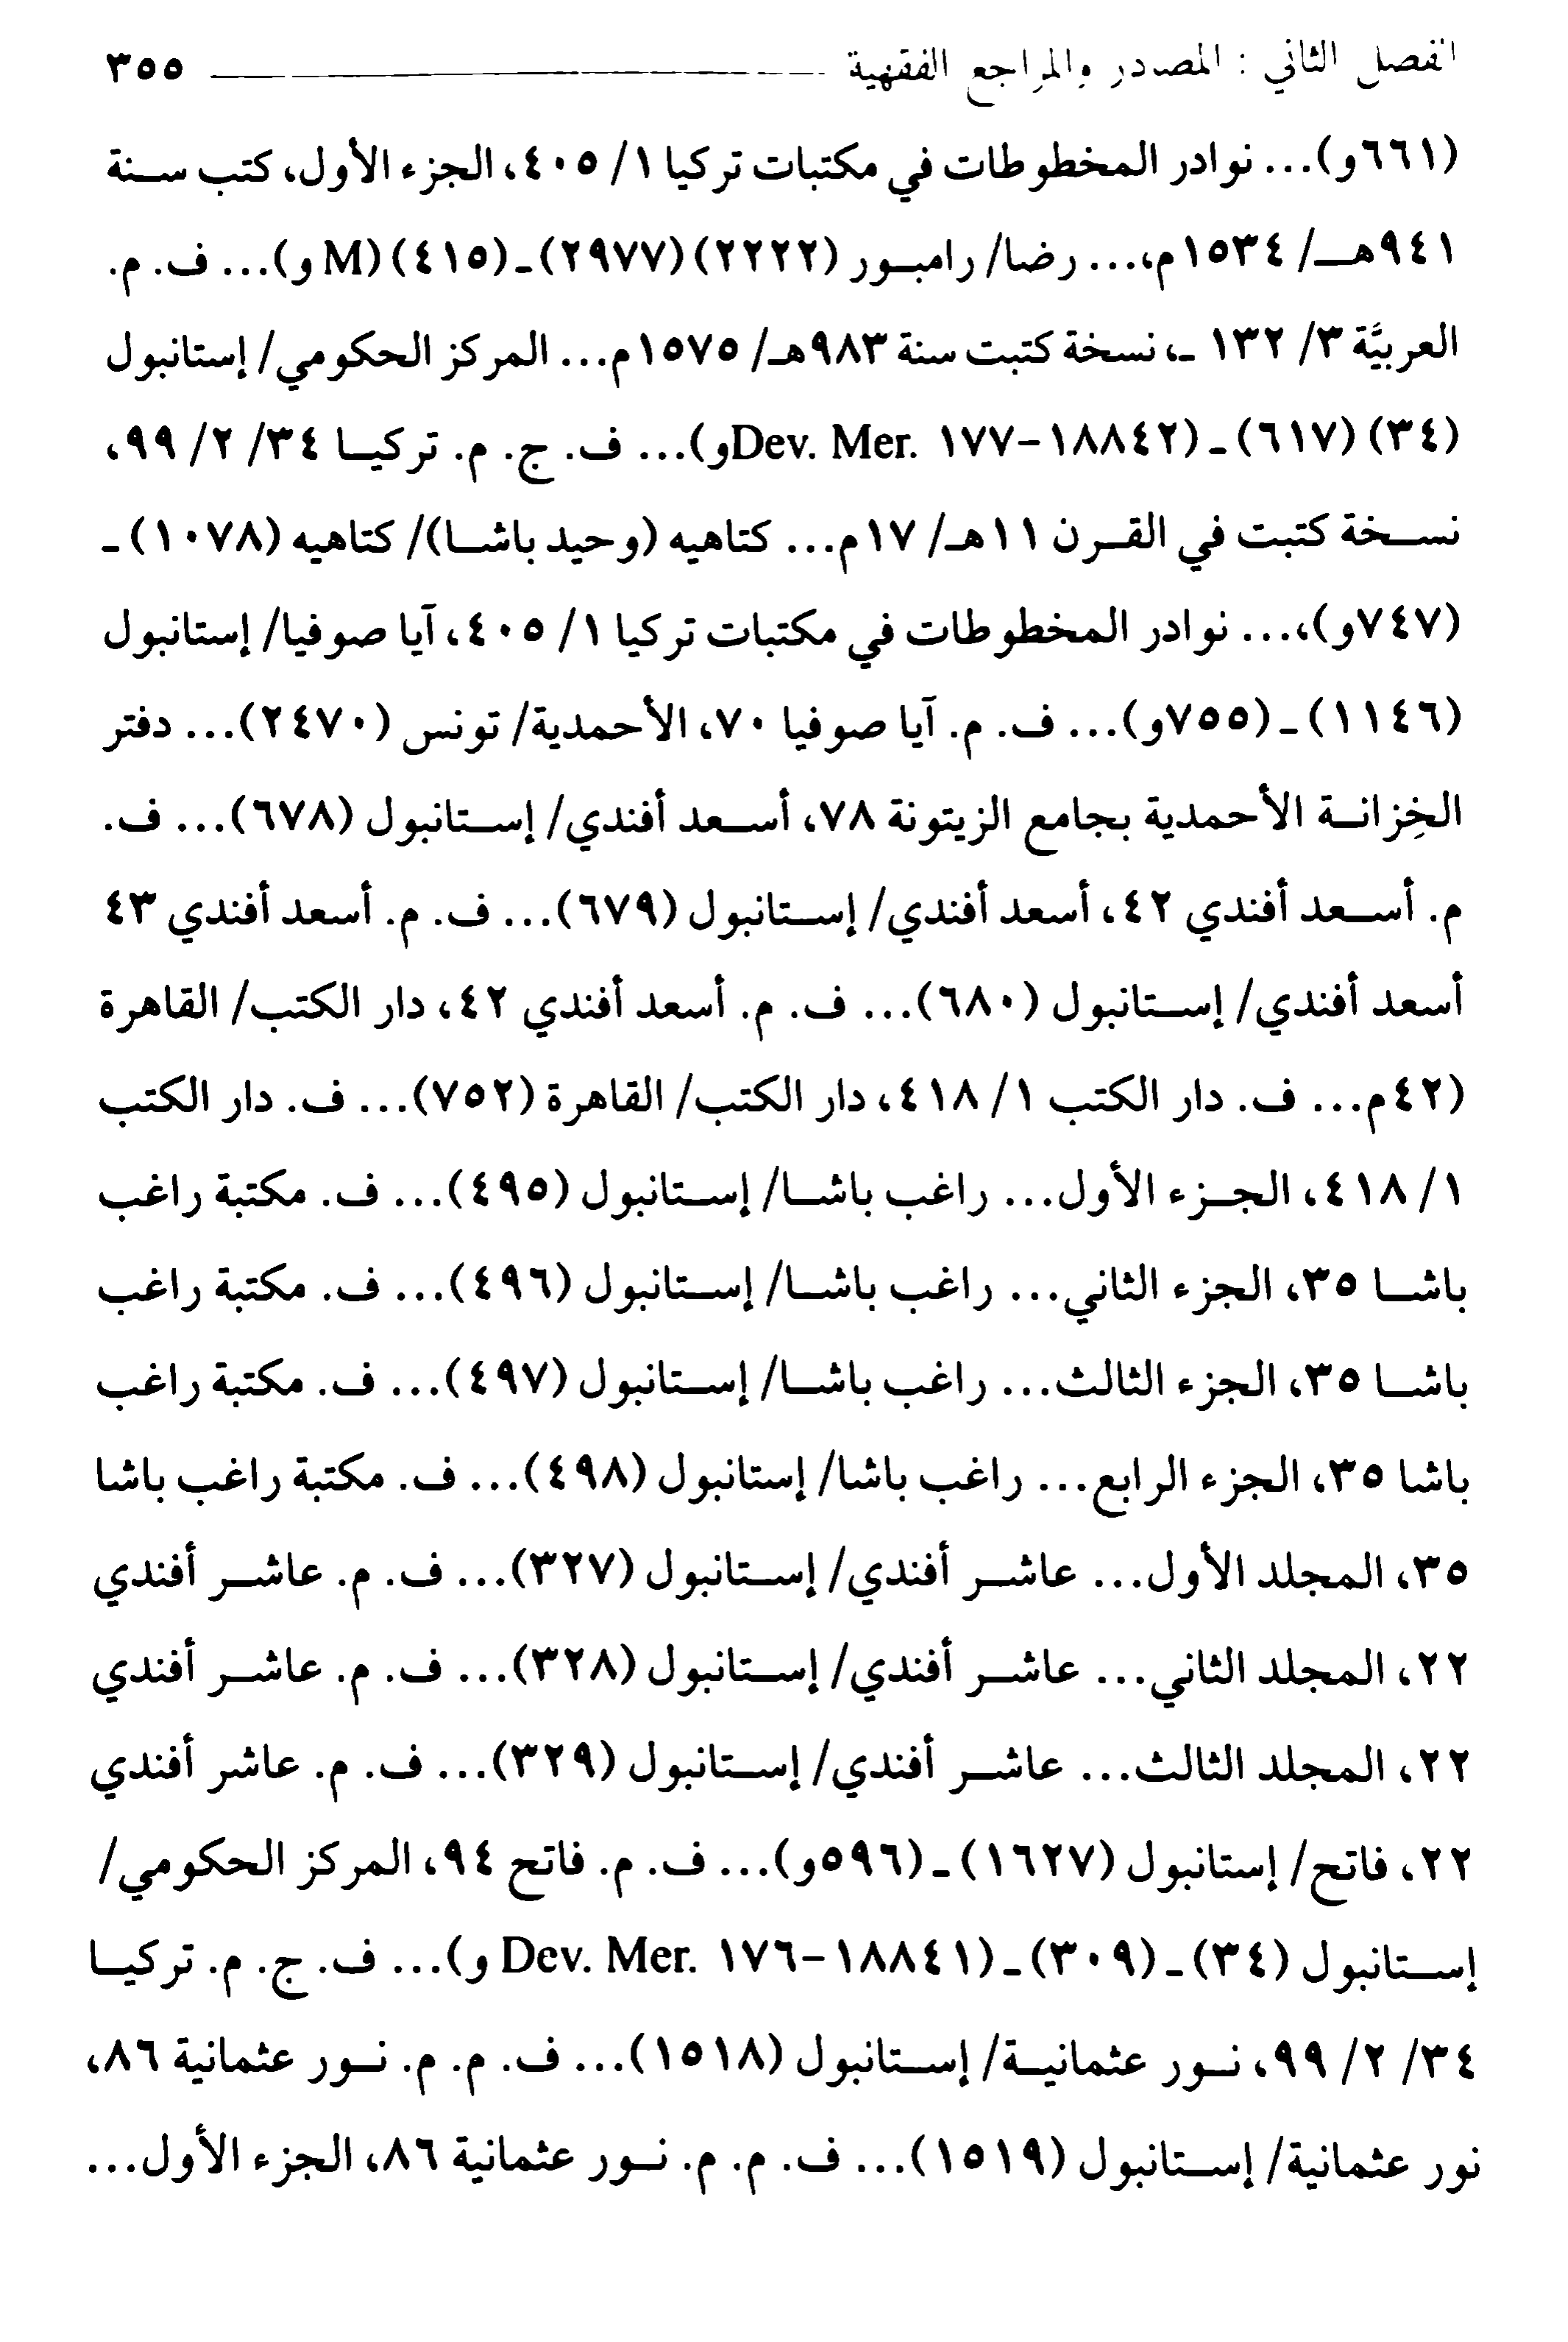 الفصل الثاني : المصادر والمراجع الفقهية ٣٥٥
(٦٦١و)... نوادر المخطوطات في مكتبات تركيا ١/ ٤٠٥، الجزء الأول، كتب سنة
٩٤١هـ/ ١٥٣٤م،... رضا/ رامبور (٢٢٢٢) (٢٩٧٧)ـ(٤١٥) (M و)... ف. م.
العربيَّة ٣/ ١٣٢ ـ، نسخة كتبت سنة ٩٨٣هـ/ ١٥٧٥م... المركز الحكومي/ إستانبول
(٣٤) (٦١٧)ـ(Dev. Mer. ١٧٧-١٨٨٤٢و)... ف. ج. م. تركيا ٣٤/ ٢/ ٩٩،
نسخة كتبت في القرن ١١هـ/ ١٧م... كتاهيه (وحيد باشا)/ كتاهيه (١٠٧٨)ـ
(٧٤٧و)،... نوادر المخطوطات في مكتبات تركيا ١/ ٤٠٥، آيا صوفيا/ إستانبول
(١١٤٦)ـ(٧٥٥و)... ف. م. آيا صوفيا ٧٠، الأحمدية/ تونس (٢٤٧٠)... دفتر
الخِزانة الأحمدية بجامع الزيتونة ٧٨، أسعد أفندي/ إستانبول (٦٧٨)... ف.
م. أسعد أفندي ٤٢، أسعد أفندي/ إستانبول (٦٧٩)... ف. م. أسعد أفندي ٤٣
أسعد أفندي/ إستانبول (٦٨٠)... ف. م. أسعد أفندي ٤٢، دار الكتب/ القاهرة
(٤٢م... ف. دار الكتب ١/ ٤١٨، دار الكتب/ القاهرة (٧٥٢)... ف. دار الكتب
١/ ٤١٨، الجزء الأول... راغب باشا/ إستانبول (٤٩٥)... ف. مكتبة راغب
باشا ٣٥، الجزء الثاني... راغب باشا/ إستانبول (٤٩٦)... ف. مكتبة راغب
باشا ٣٥، الجزء الثالث... راغب باشا/ إستانبول (٤٩٧)... ف. مكتبة راغب
باشا ٣٥، الجزء الرابع... راغب باشا/ إستانبول (٤٩٨)... ف. مكتبة راغب باشا
٣٥، المجلد الأول... عاشر أفندي/ إستانبول (٣٢٧)... ف. م. عاشر أفندي
٢٢، المجلد الثاني... عاشر أفندي/ إستانبول (٣٢٨)... ف. م. عاشر أفندي
٢٢، المجلد الثالث... عاشر أفندي/ إستانبول (٣٢٩)... ف. م. عاشر أفندي
٢٢، فاتح/ إستانبول (١٦٢٧)ـ(٥٩٦و)... ف. م. فاتح ٩٤، المركز الحكومي/
إستانبول (٣٤)ـ(٣٠٩)ـ(Dev. Mer. ١٧٦-١٨٨٤١ و)... ف. ج. م. تركيا
٣٤/ ٢/ ٩٩، نور عثمانية/ إستانبول (١٥١٨)... ف. م. م. نور عثمانية ٨٦،
نور عثمانية/ إستانبول (١٥١٩)... ف. م. م. نور عثمانية ٨٦، الجزء الأول...